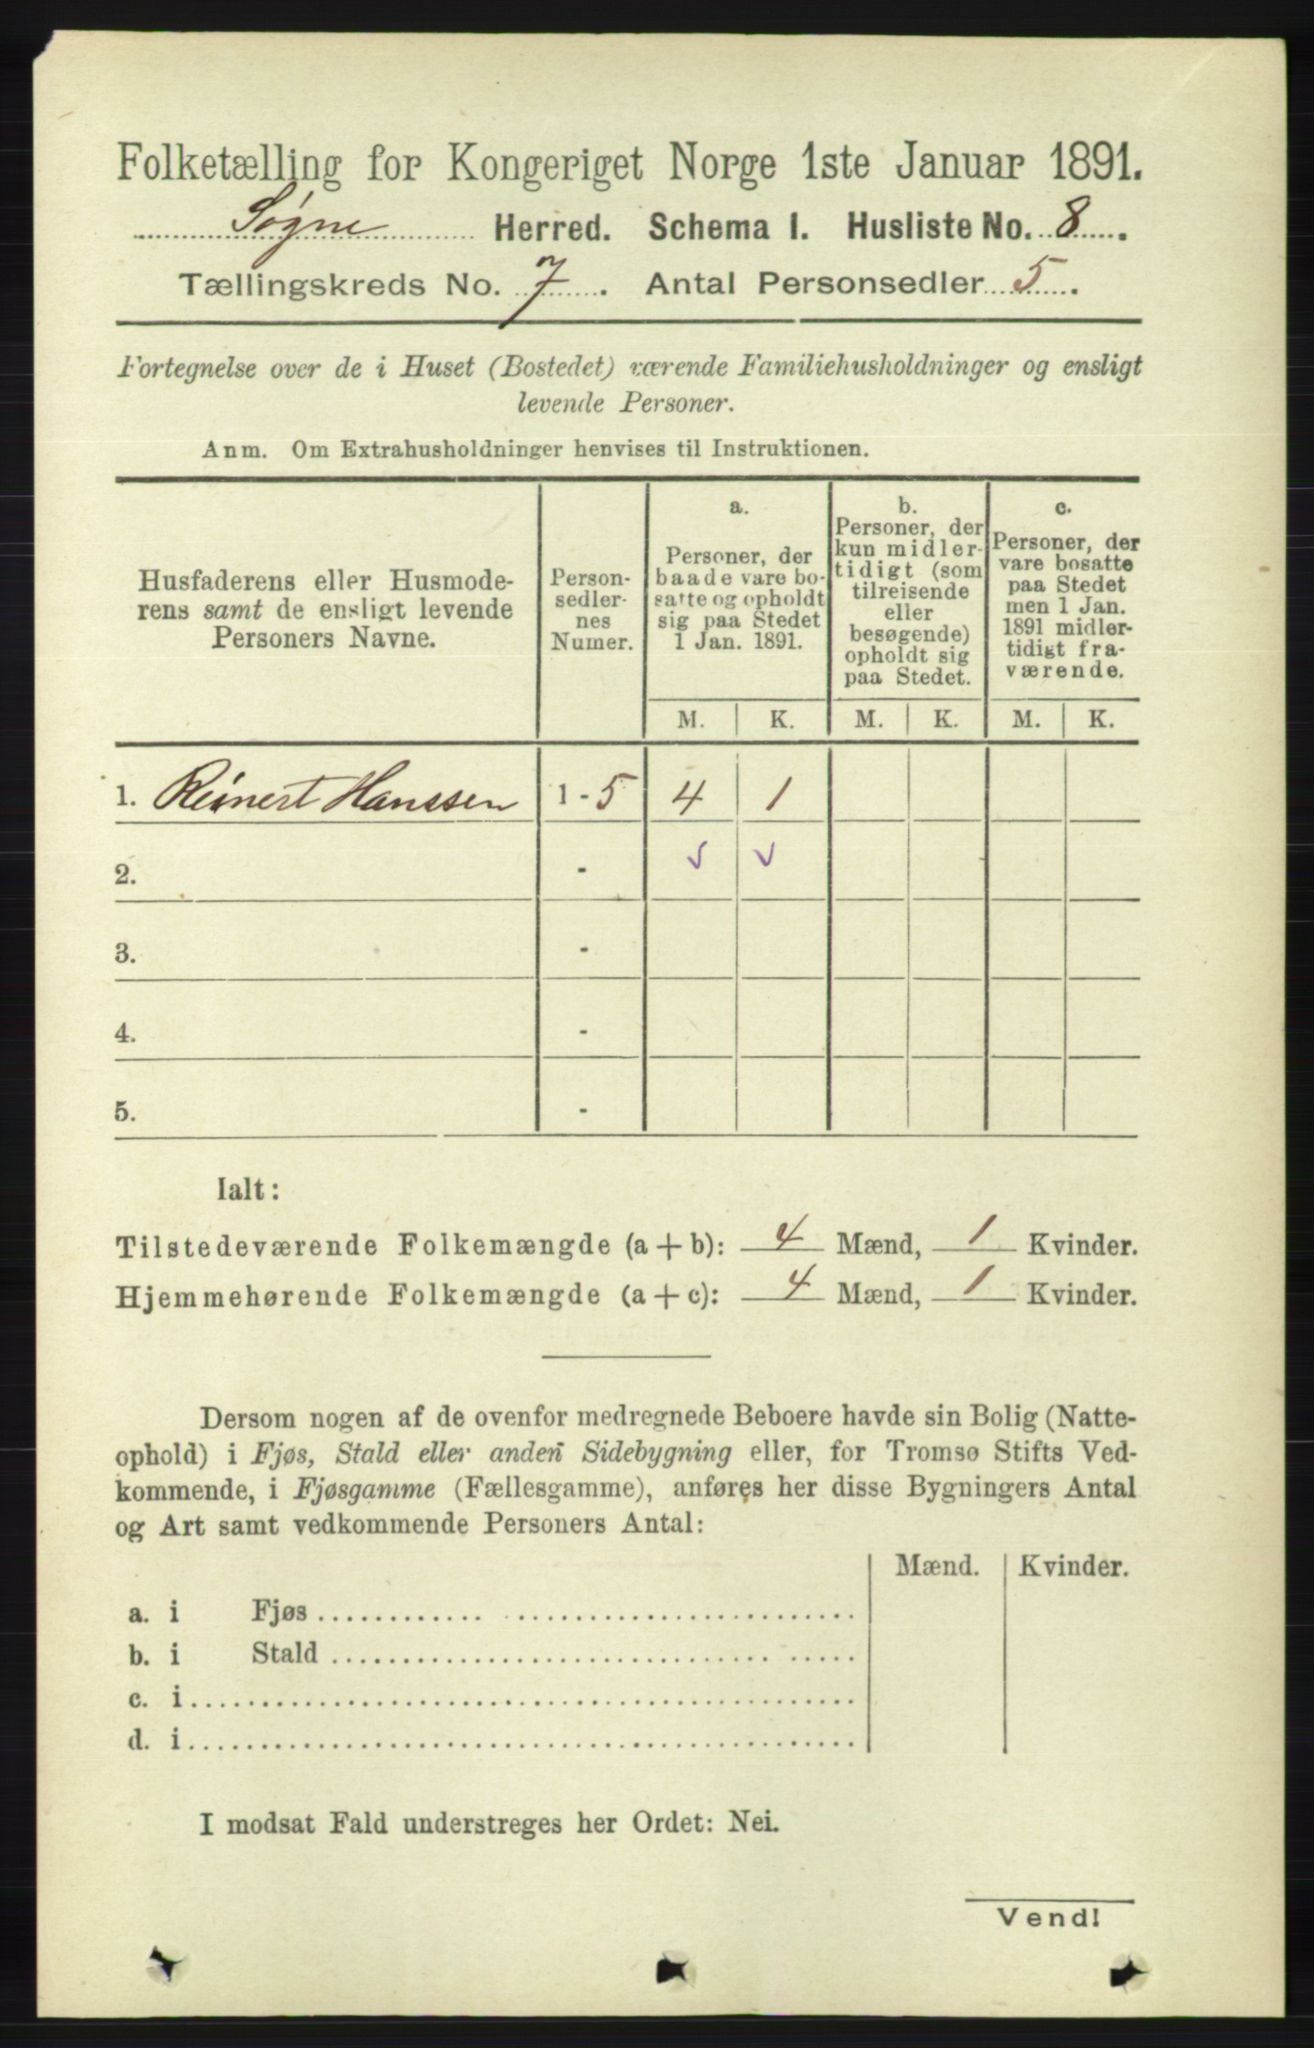 Folketælling for Kongeriget Norge 1ste Januar 1891.
Søgne Herred. Schema I. Husliste No. 8.
Tællingskreds No. 7. Antal Personsedler 5.
Fortegnelse over de i Huset (Bostedet) værende Familiehusholdninger og ensligt
levende Personer.
Anm. Om Extrahusholdninger henvises til Instruktionen.
Husfaderens eller Husmode-
rens samt de ensligt levende
Personers Navne.
Person-
sedler-
nes
Numer.
a.
Personer, der
baade vare bo-
satte og opholdt
sig paa Stedet
1 Jan. 1891.
b.
Personer, der
kun midler-
tidigt (som
tilreisende
eller
besøgende)
opholdt sig
paa Stedet.
c.
Personer, der
vare bosatte
paa Stedet
men 1 Jan.
1891 midler-
tidigt fra-
værende.
M. K. M. K. M. K.
1. Reinert Hanssen 1 - 5 4 1
2. - v v
3. -
4. -
5. -
Ialt:
Tilstedeværende Folkemængde (a + b): 4 Mænd, 1 Kvinder.
Hjemmehørende Folkemængde (a + c): 4 Mænd, 1 Kvinder.
Dersom nogen af de ovenfor medregnede Beboere havde sin Bolig (Natte-
ophold) i Fjøs, Stald eller anden Sidebygning eller, for Tromsø Stifts Ved-
kommende, i Fjøsgamme (Fællesgamme), anføres her disse Bygningers Antal
og Art samt vedkommende Personers Antal:
Mænd. Kvinder.
a. i Fjøs
b. i Stald
c. i
d. i
I modsat Fald understreges her Ordet: Nei.
Vend!